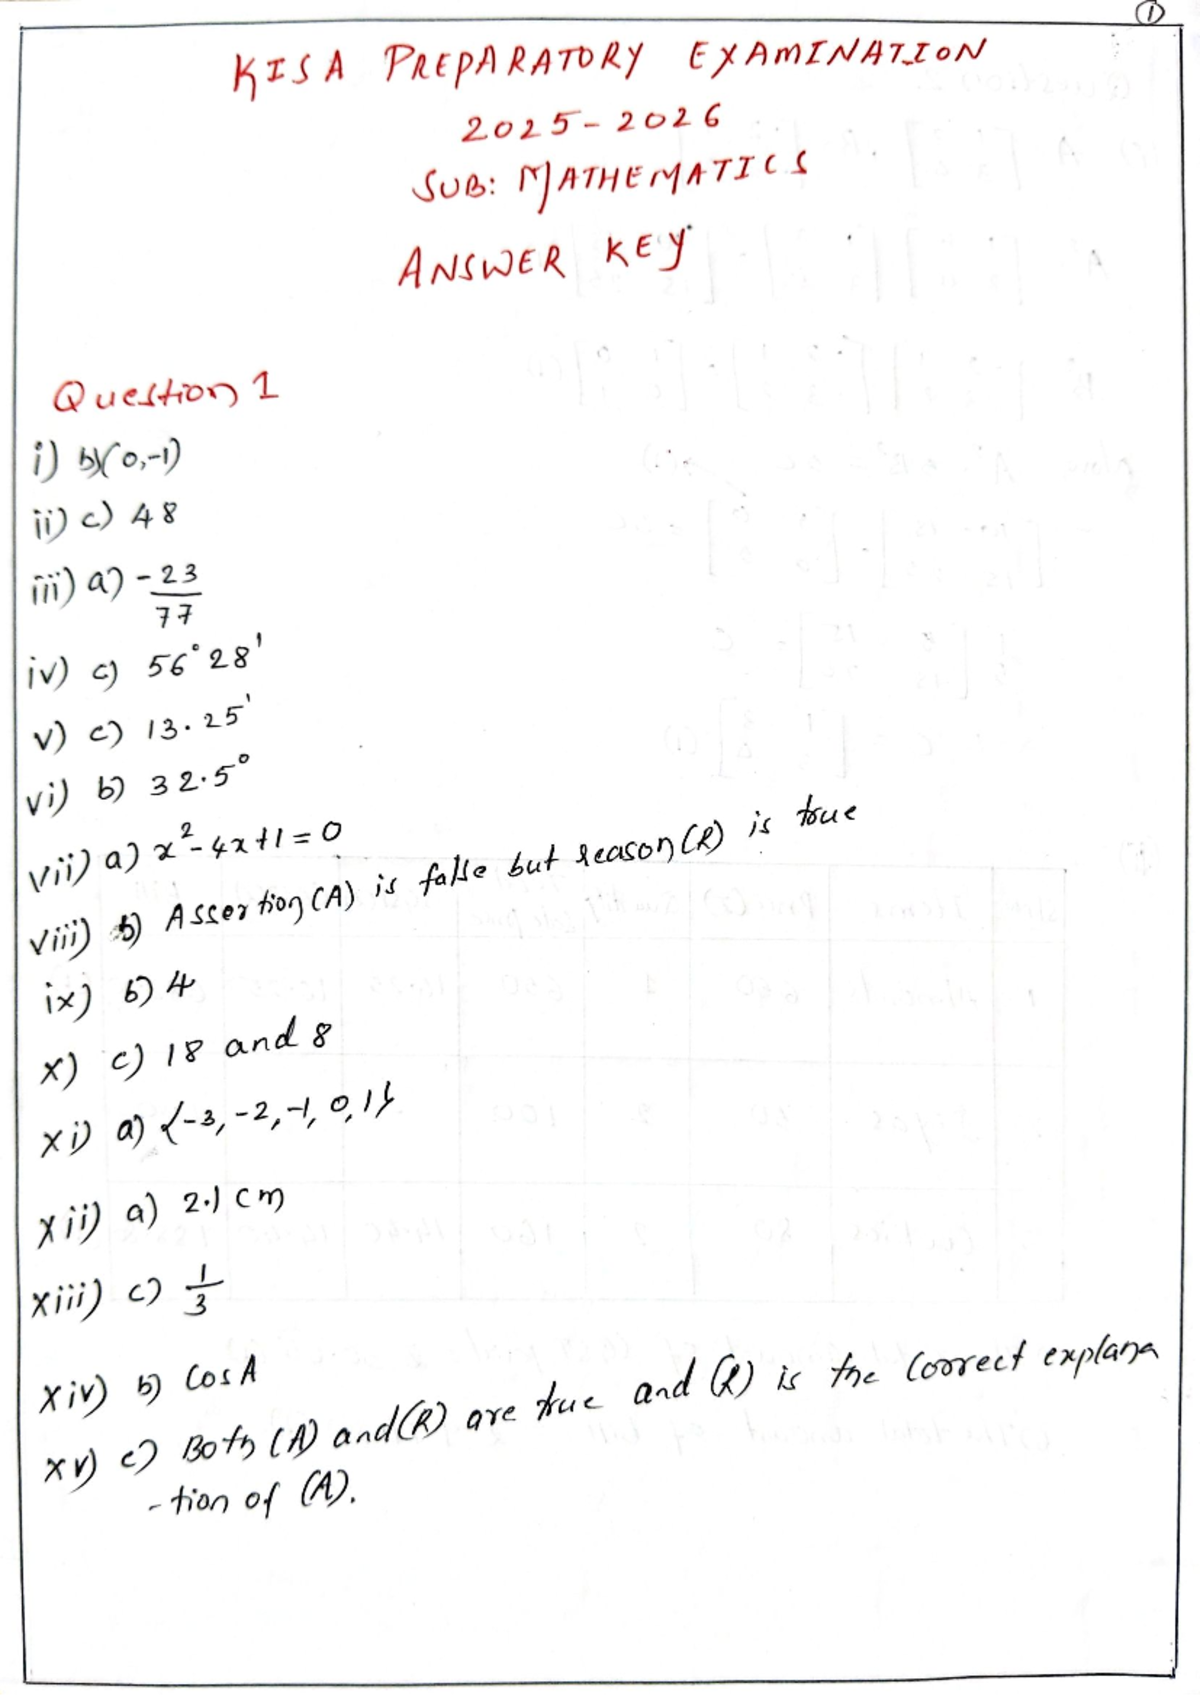 1
KISA PREPARATORY EXAMINATION
2025-2026
SUB: MATHEMATICS
ANSWER KEY
Question 1
i) b) (0,-1)
ii) c) 48
iii) a) -23/77
iv) c) 56° 28'
v) c) 13.25'
vi) b) 32.5°
vii) a) x²-4x+1=0
viii) b) Assertion (A) is false but reason (R) is true
ix) b) 4
x) c) 18 and 8
xi) a) {-3, -2, -1, 0, 1}
xii) a) 2.1 cm
xiii) c) 1/3
xiv) b) Cos A
xv) c) Both (A) and (R) are true and (R) is the correct explana
-tion of (A).